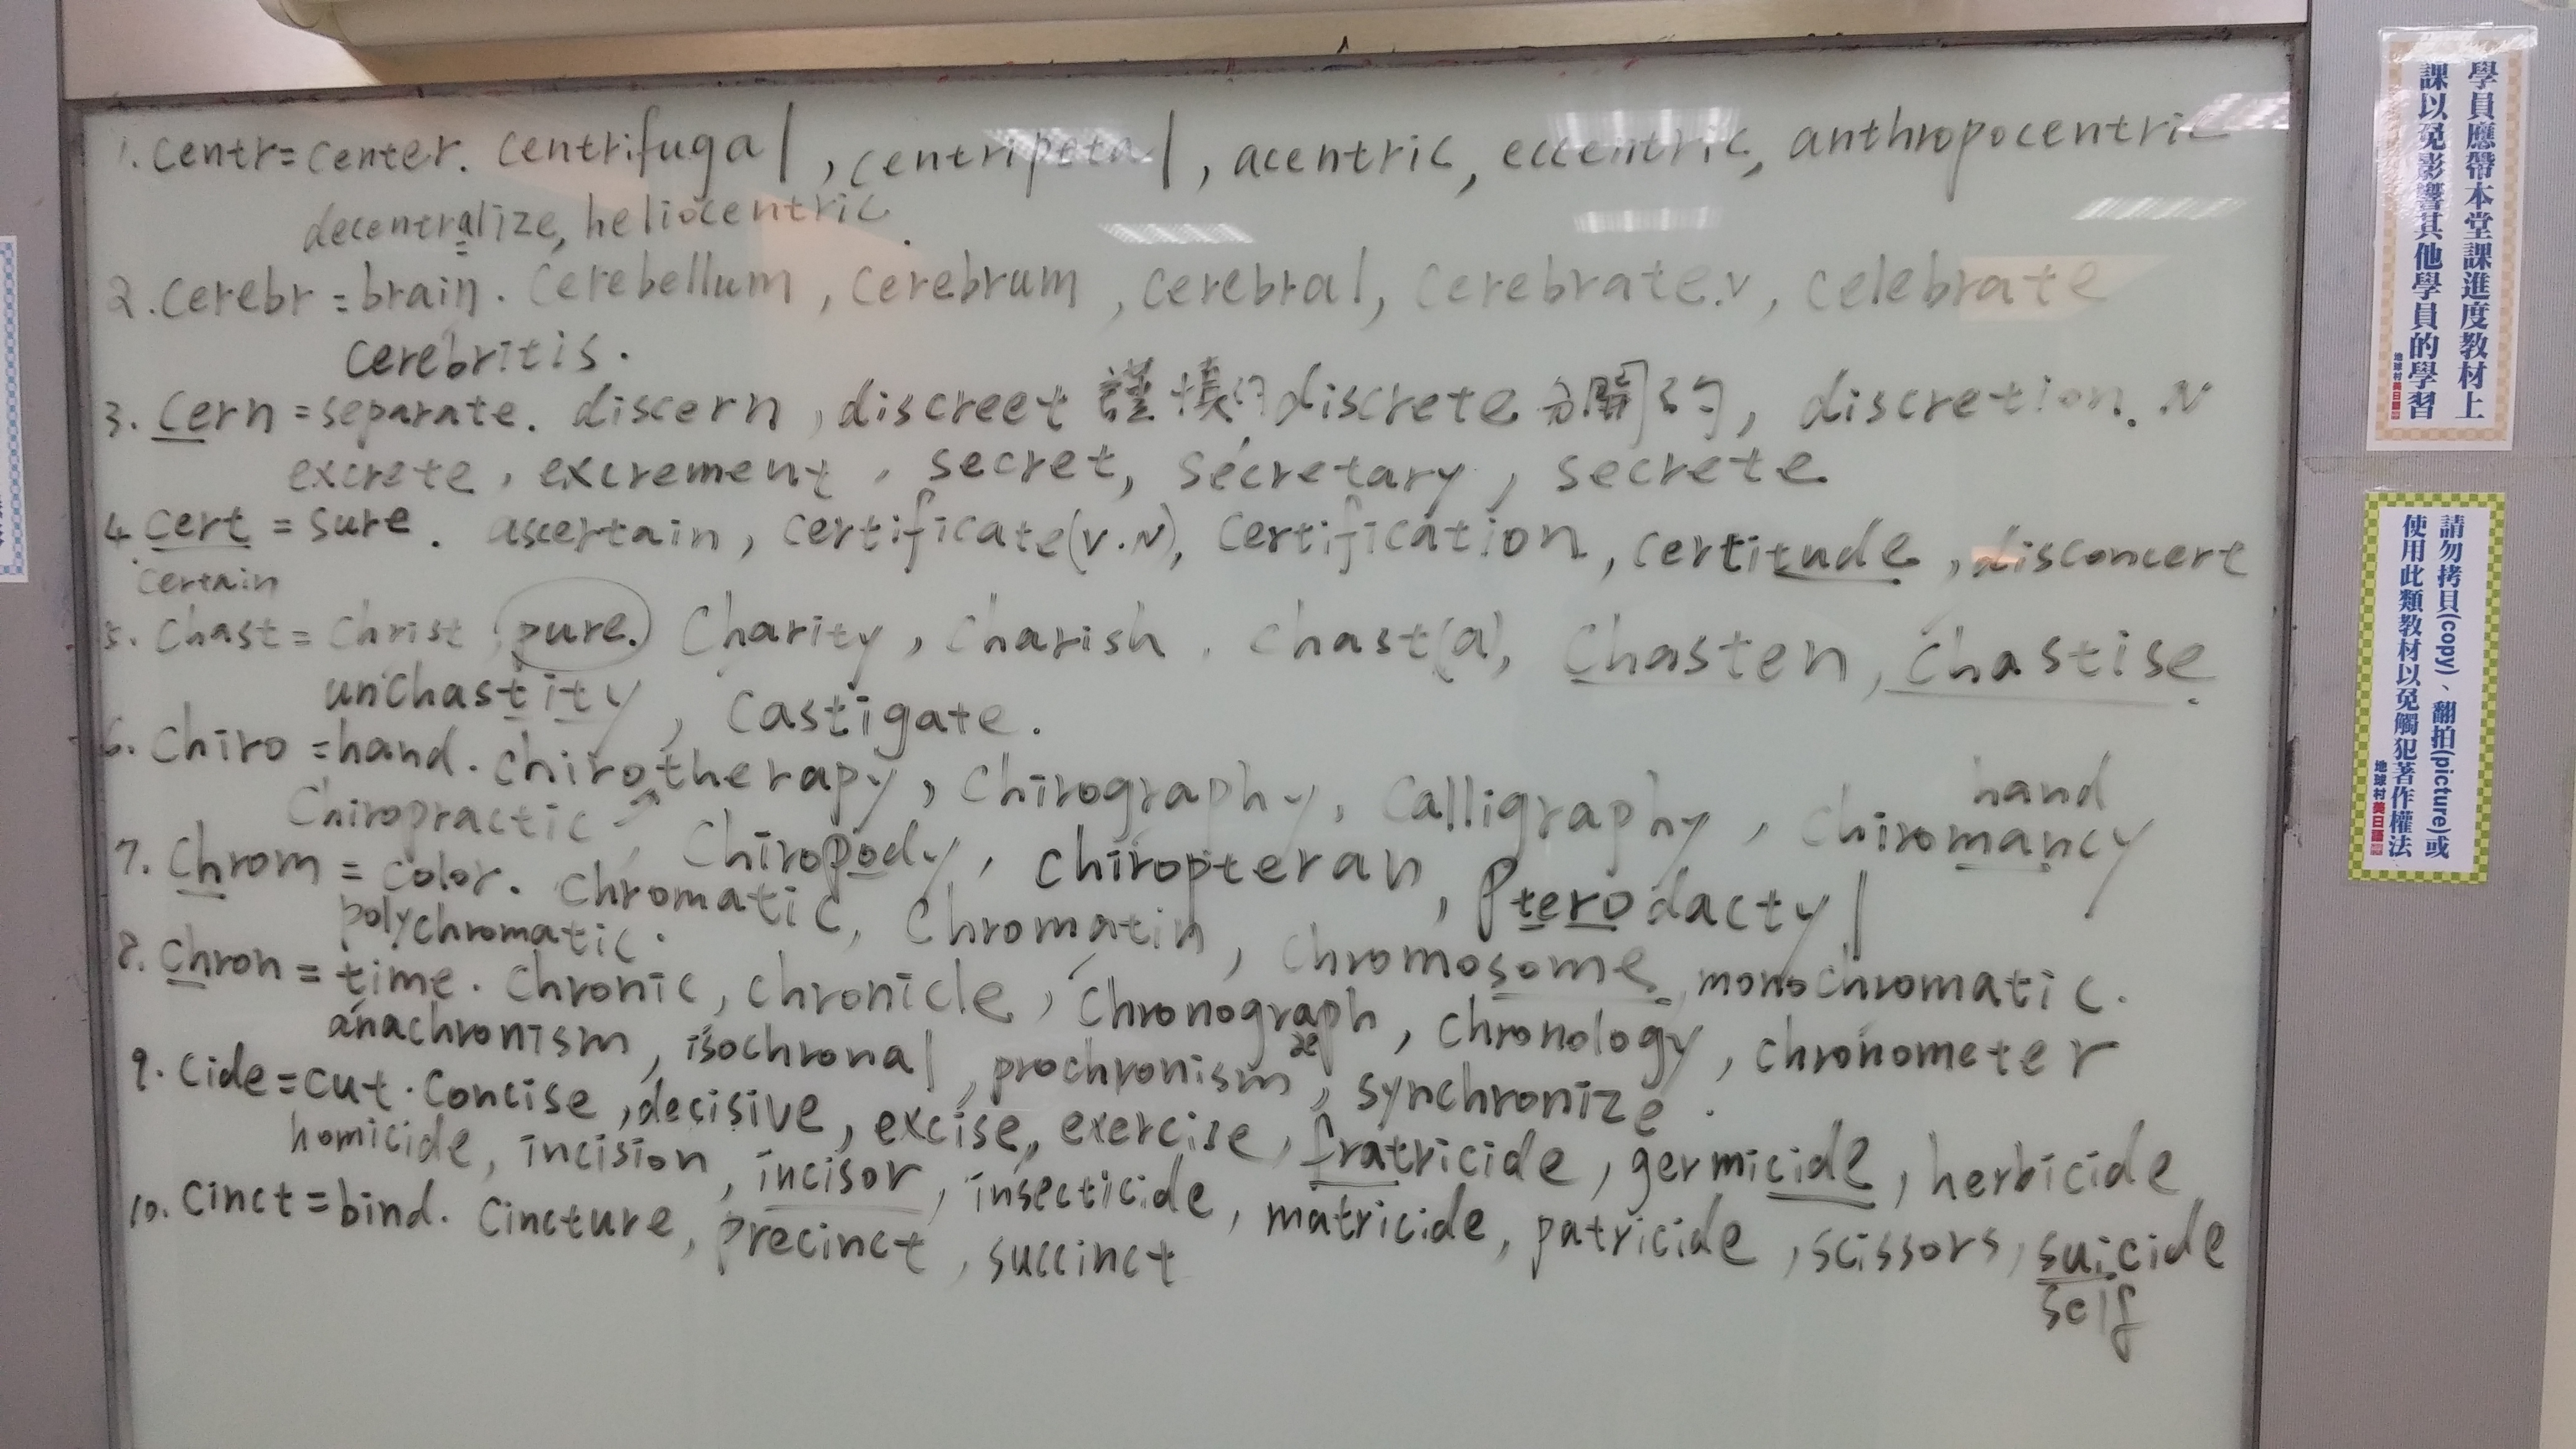 1. centr=center. centrifugal, centripetal, acentric, eccentric, anthropocentric
decentralize, heliocentric.
2. cerebr=brain. cerebellum, cerebrum, cerebral, cerebrate.v, celebrate
cerebritis.
3. cern=separate. discern, discreet 謹慎的 discrete 分開的, discretion. N
excrete, excrement, secret, secretary, secrete
4. cert = sure. ascertain, certificate(v.N), certification, certitude, disconcert
certain
5. chast= christ, pure. charity, charish, chast(a), chasten, chastise.
unchastity, castigate.
6. chiro=hand. chirotherapy, chirography, calligraphy, chiromancy
hand
chiropractic, chiropody, chiropteran, pterodactyl
7. chrom = color. chromatic, chromatin, chromosome, monochromatic.
polychromatic.
8. chron=time. chronic, chronicle, chronograph, chronology, chronometer
æ
anachronism, isochronal, prochronism, synchronize.
9. cide=cut. concise, decisive, excise, exercise, fratricide, germicide, herbicide
homicide, incision, incisor, insecticide, matricide, patricide, scissors, suicide
self
10. cinct=bind. cincture, precinct, succinct
學員應帶本堂課進度教材上
課以免影響其他學員的學習
地球村美日語
請勿拷貝(copy)、翻拍(picture)或
使用此類教材以免觸犯著作權法
地球村美日語